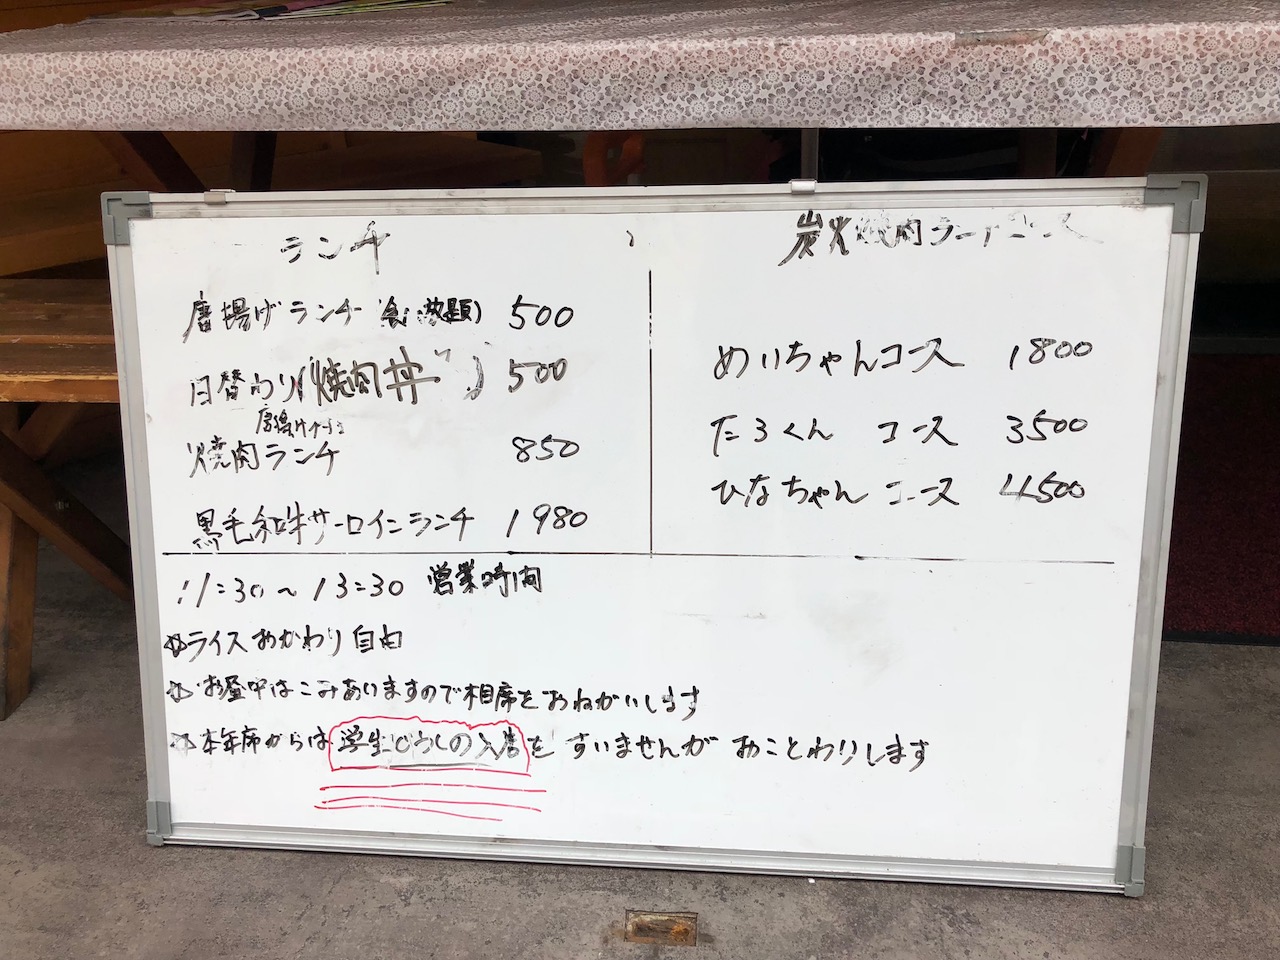 ランチ
唐揚げランチ 食い放題) 500
日替わり(焼肉丼) 500
唐揚げ
焼肉ランチ 850
黒毛和牛サーロインランチ 1980
炭火焼肉ランチコース
めいちゃんコース 1800
たろくん コース 3500
ひなちゃん コース 4500
11:30~13:30 営業時間
☆ライスおかわり自由
☆お昼中はこみありますので相席をおねがいします
☆本年席からは学生どうしの入店を すいませんが おことわりします